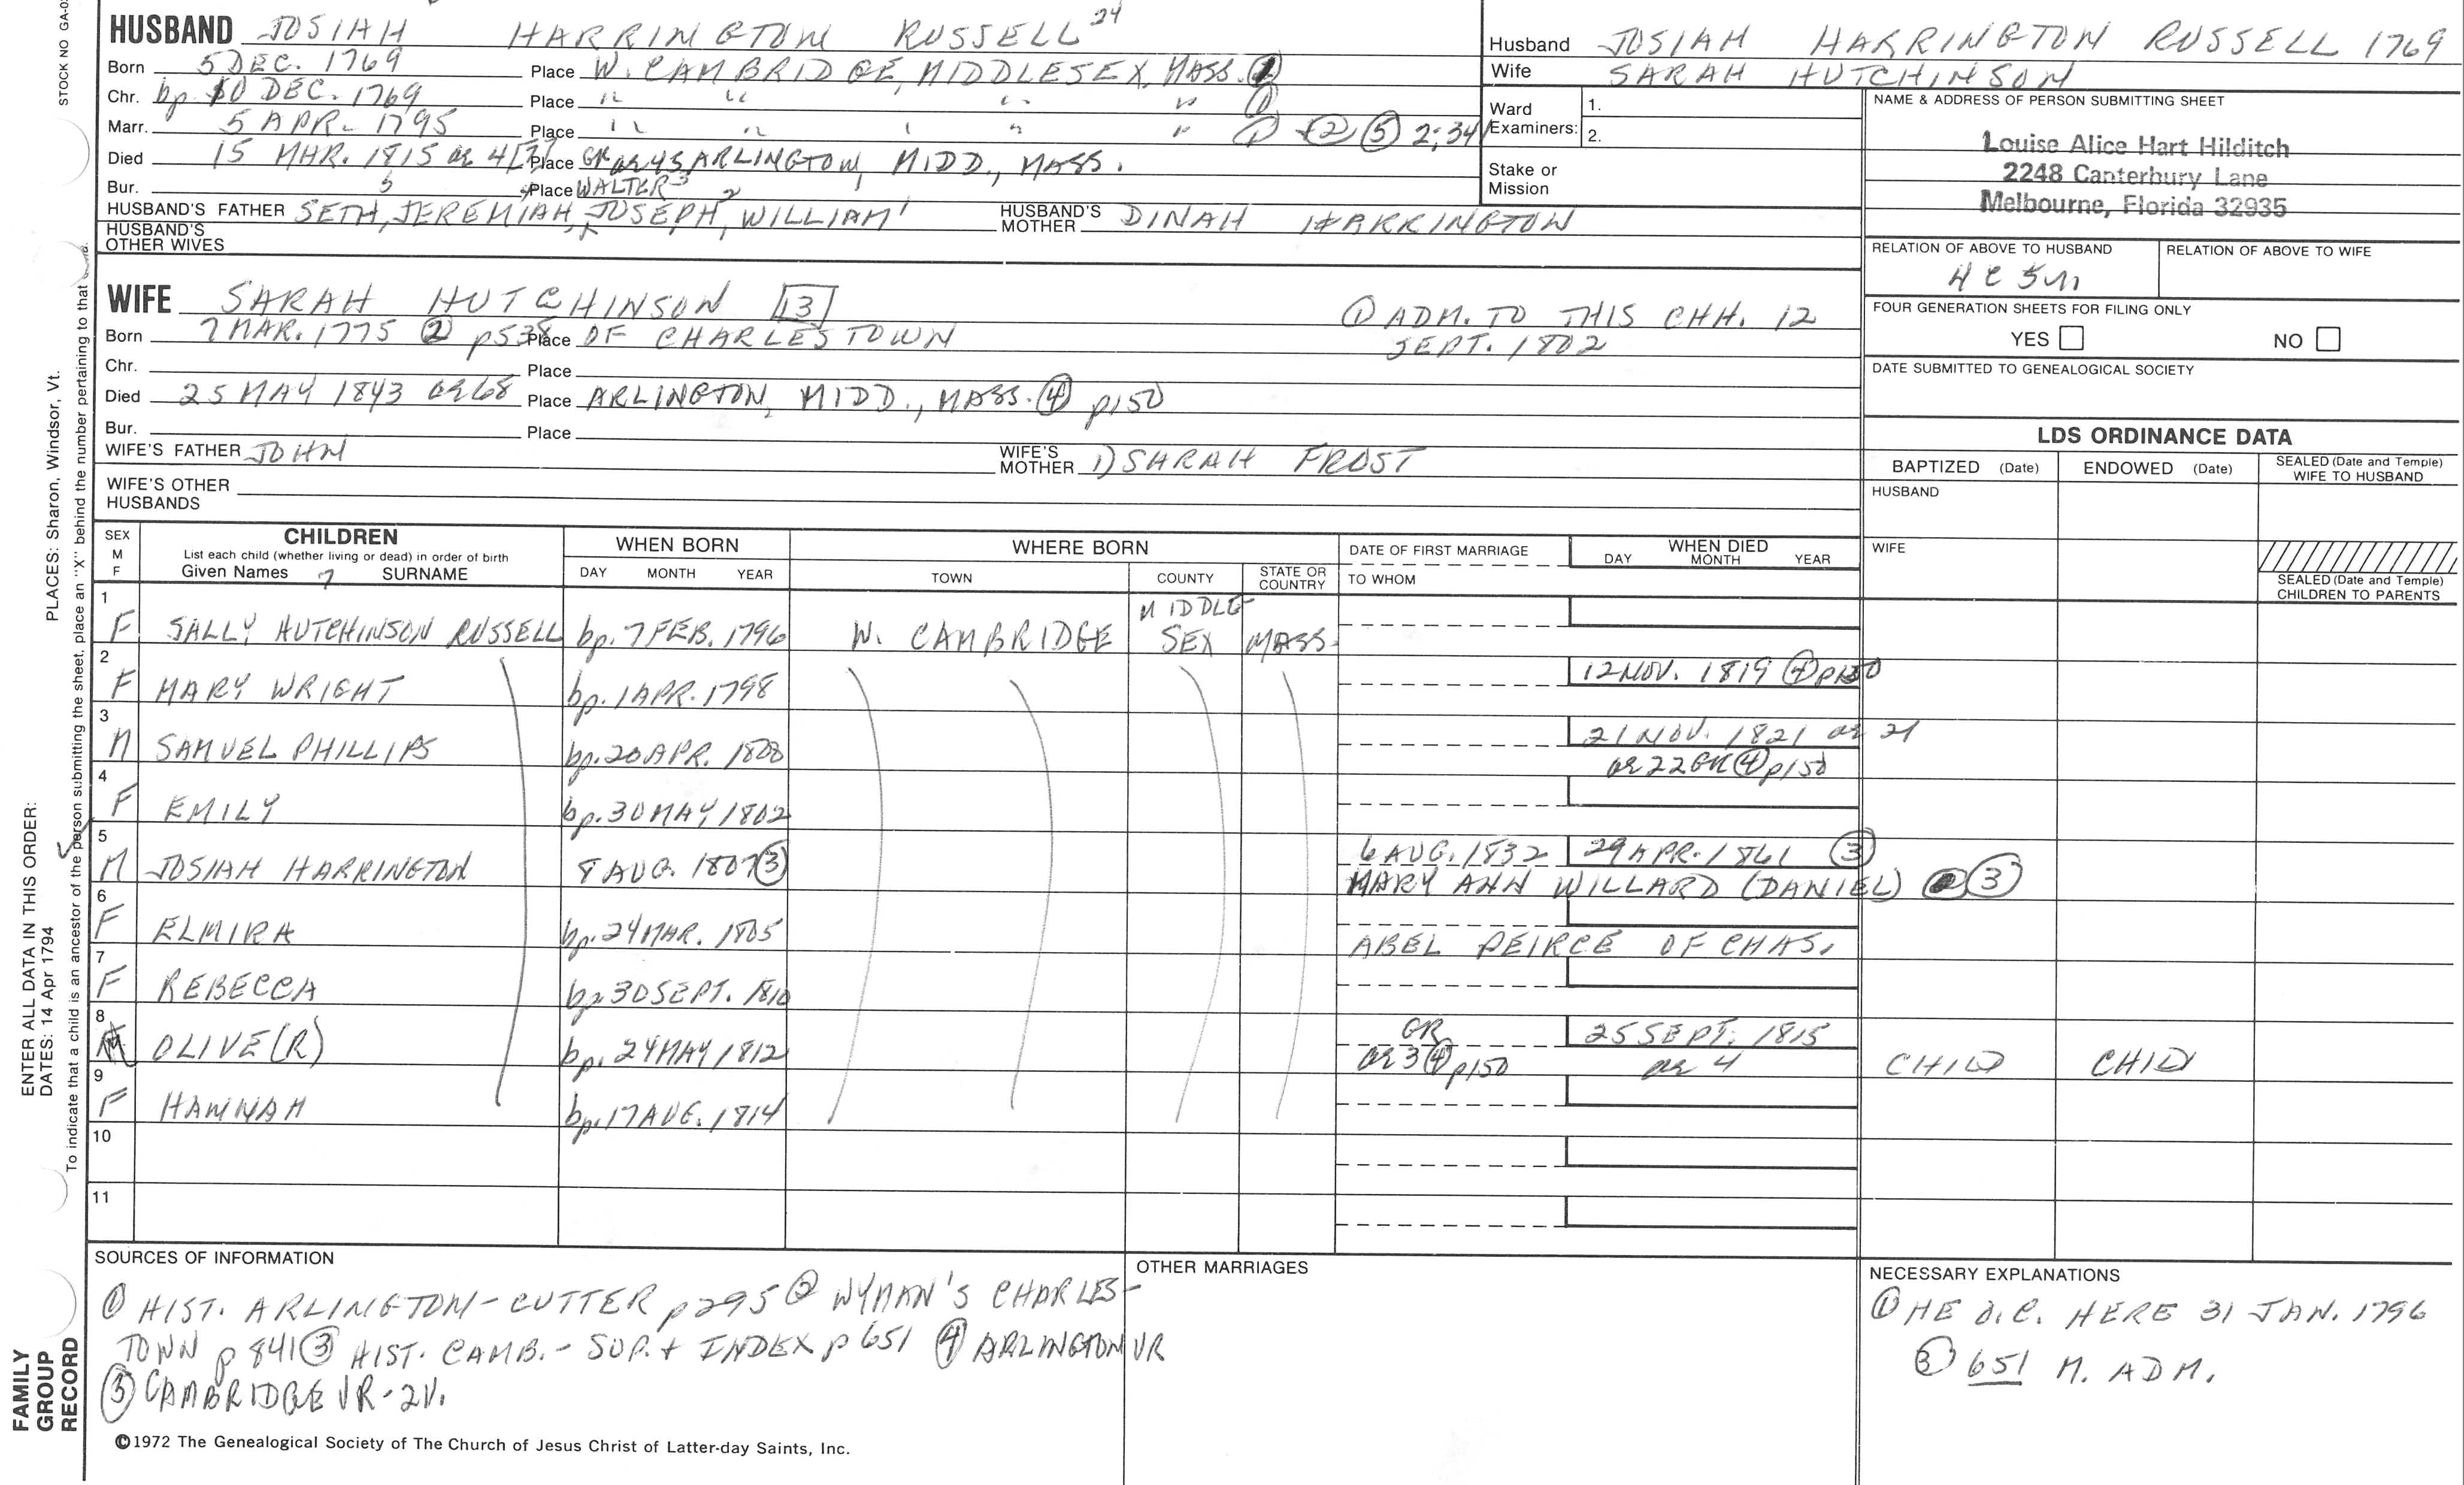 STOCK NO GA-0
HUSBAND JOSIAH HARRINGTON RUSSELL 24
Born 5 DEC. 1769 Place W. CAMBRIDGE, MIDDLESEX, MASS. ①
Chr. bp. 10 DEC. 1769 Place " " " " ①
Marr. 5 APR. 1795 Place " " " " " ① ② ⑤ 2:34
Died 15 MAR. 1815 ae 4 Place GR ae 45 ARLINGTON, MIDD., MASS.
Bur. Place WALTER 3
HUSBAND'S FATHER SETH 5, JEREMIAH 4, JOSEPH 2, WILLIAM 1 HUSBAND'S MOTHER DINAH HARRINGTON
HUSBAND'S OTHER WIVES
Husband JOSIAH HARRINGTON RUSSELL 1769
Wife SARAH HUTCHINSON
Ward Examiners: 1.
2.
Stake or Mission
NAME & ADDRESS OF PERSON SUBMITTING SHEET
Louise Alice Hart Hilditch
2248 Canterbury Lane
Melbourne, Florida 32935
RELATION OF ABOVE TO HUSBAND RELATION OF ABOVE TO WIFE
4 C 5
FOUR GENERATION SHEETS FOR FILING ONLY
YES NO
DATE SUBMITTED TO GENEALOGICAL SOCIETY
WIFE SARAH HUTCHINSON 13 ① ADM. TO THIS CHH. 12
Born 7 MAR. 1775 ② p538 Place OF CHARLESTOWN SEPT. 1802
Chr. Place
Died 25 MAY 1843 ae 68 Place ARLINGTON, MIDD., MASS. ④ p150
Bur. Place
WIFE'S FATHER JOHN WIFE'S MOTHER 1) SARAH FROST
WIFE'S OTHER HUSBANDS
LDS ORDINANCE DATA
BAPTIZED (Date) ENDOWED (Date) SEALED (Date and Temple) WIFE TO HUSBAND
HUSBAND
WIFE
SEALED (Date and Temple) CHILDREN TO PARENTS
SEX M F CHILDREN List each child (whether living or dead) in order of birth Given Names 7 SURNAME
WHEN BORN DAY MONTH YEAR
WHERE BORN TOWN COUNTY STATE OR COUNTRY
DATE OF FIRST MARRIAGE TO WHOM
WHEN DIED DAY MONTH YEAR
1 F SALLY HUTCHINSON RUSSELL bp. 7 FEB. 1796 W. CAMBRIDGE MIDDLE SEX MASS.
2 F MARY WRIGHT bp. 1 APR. 1798 12 NOV. 1819 ④ p150
3 M SAMUEL PHILLIPS bp. 20 APR. 1800 21 NOV. 1821 ae 21
ae 22 GR ④ p150
4 F EMILY bp. 30 MAY 1802
5 M JOSIAH HARRINGTON 8 AUG. 1807 ③ 6 AUG. 1832 29 APR. 1861 ③
MARY ANN WILLARD (DANIEL) ③
6 F ELMIRA bp. 24 MAR. 1805
ABEL PEIRCE OF CHAS.
7 F REBECCA bp 30 SEPT. 1810
8 OLIVE(R) bp. 24 MAY 1812 GR ae 3 ④ p150 25 SEPT. 1815 ae 4 CHILD CHILD
9 F HANNAH bp. 17 AUG. 1814
10
11
SOURCES OF INFORMATION
① HIST. ARLINGTON - CUTTER p295 ② WYMAN'S CHARLES-
TOWN p 841 ③ HIST. CAMB. - SUP. + INDEX p 651 ④ ARLINGTON VR
⑤ CAMBRIDGE VR - 2V.
©1972 The Genealogical Society of The Church of Jesus Christ of Latter-day Saints, Inc.
OTHER MARRIAGES
NECESSARY EXPLANATIONS
① HE O.C. HERE 31 JAN. 1796
③ 651 M. ADM.
PLACES: Sharon, Windsor, Vt.
ENTER ALL DATA IN THIS ORDER:
DATES: 14 Apr 1794
To indicate that a child is an ancestor of the person submitting the sheet, place an "X" behind the number pertaining to that
FAMILY
GROUP
RECORD